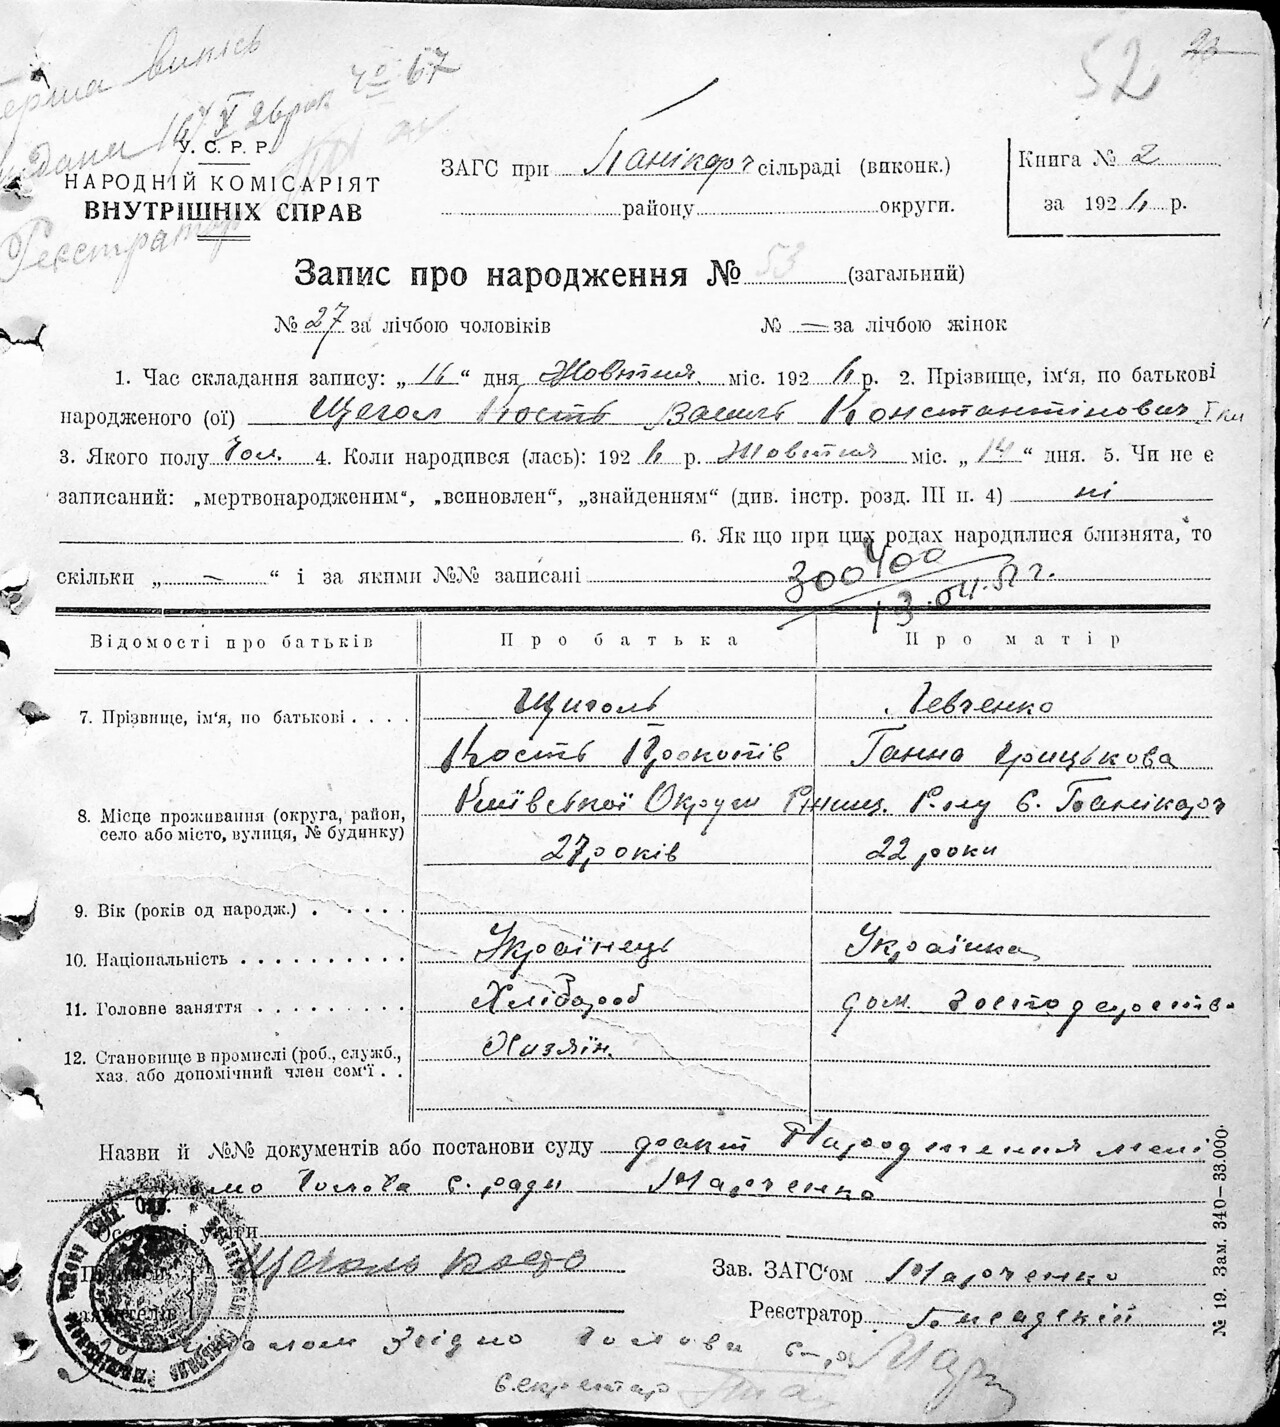 52 23
Перша випись
Дана 16/X 26 рок № 67
Реєстратор
У. С. Р. Р.
НАРОДНІЙ КОМІСАРІЯТ
ВНУТРІШНІХ СПРАВ
ЗАГС при Панікарч сільраді (виконк.)
району округи.
Книга № 2
за 192 р.
Запис про народження № 53 (загальний)
№ 27 за лічбою чоловіків № — за лічбою жінок
1. Час складання запису: „16“ дня Жовтня міс. 192 р. 2. Прізвище, ім'я, по батькові
народженого (ої) Щегол Кость Василь Константінович
3. Якого полу Чол. 4. Коли народився (лась): 192 р. Жовтня міс. „14“ дня. 5. Чи не є
записаний: „мертвонародженим“, „всиновлен“, „знайденням“ (див. інстр. розд. III п. 4) ні
6. Як що при цих родах народилися близнята, то
скільки „ — “ і за якими №№ записані
300400
13.04.51 г.
Відомості про батьків Про батька Про матір
7. Прізвище, ім'я, по батькові . . . . Щиголь Левченко
Кость Прокопів Ганна Грицькова
8. Місце проживання (округа, район, село або місто, вулиця, № будинку) Київської Округи Ржищ. Р-ну С. Панікарч
27 років 22 роки
9. Вік (років од народж.) . . . . .
10. Національність . . . . . . . . . . Українець Українка
11. Головне заняття . . . . . . . . . Хлібороб дом. господарство
12. Становище в промислі (роб., служб., хаз. або допомічний член сем'ї . . Хазяїн.
Назви й №№ документів або постанови суду факт Народження мені
домо Голова с. ради Марченко
Особливі уваги
Підписи заявителів Щеголь Косто
Зав. ЗАГС'ом Марченко
Реєстратор
згідно Голова с-р.
Секретар
№ 19. Зам. 340—33.000.